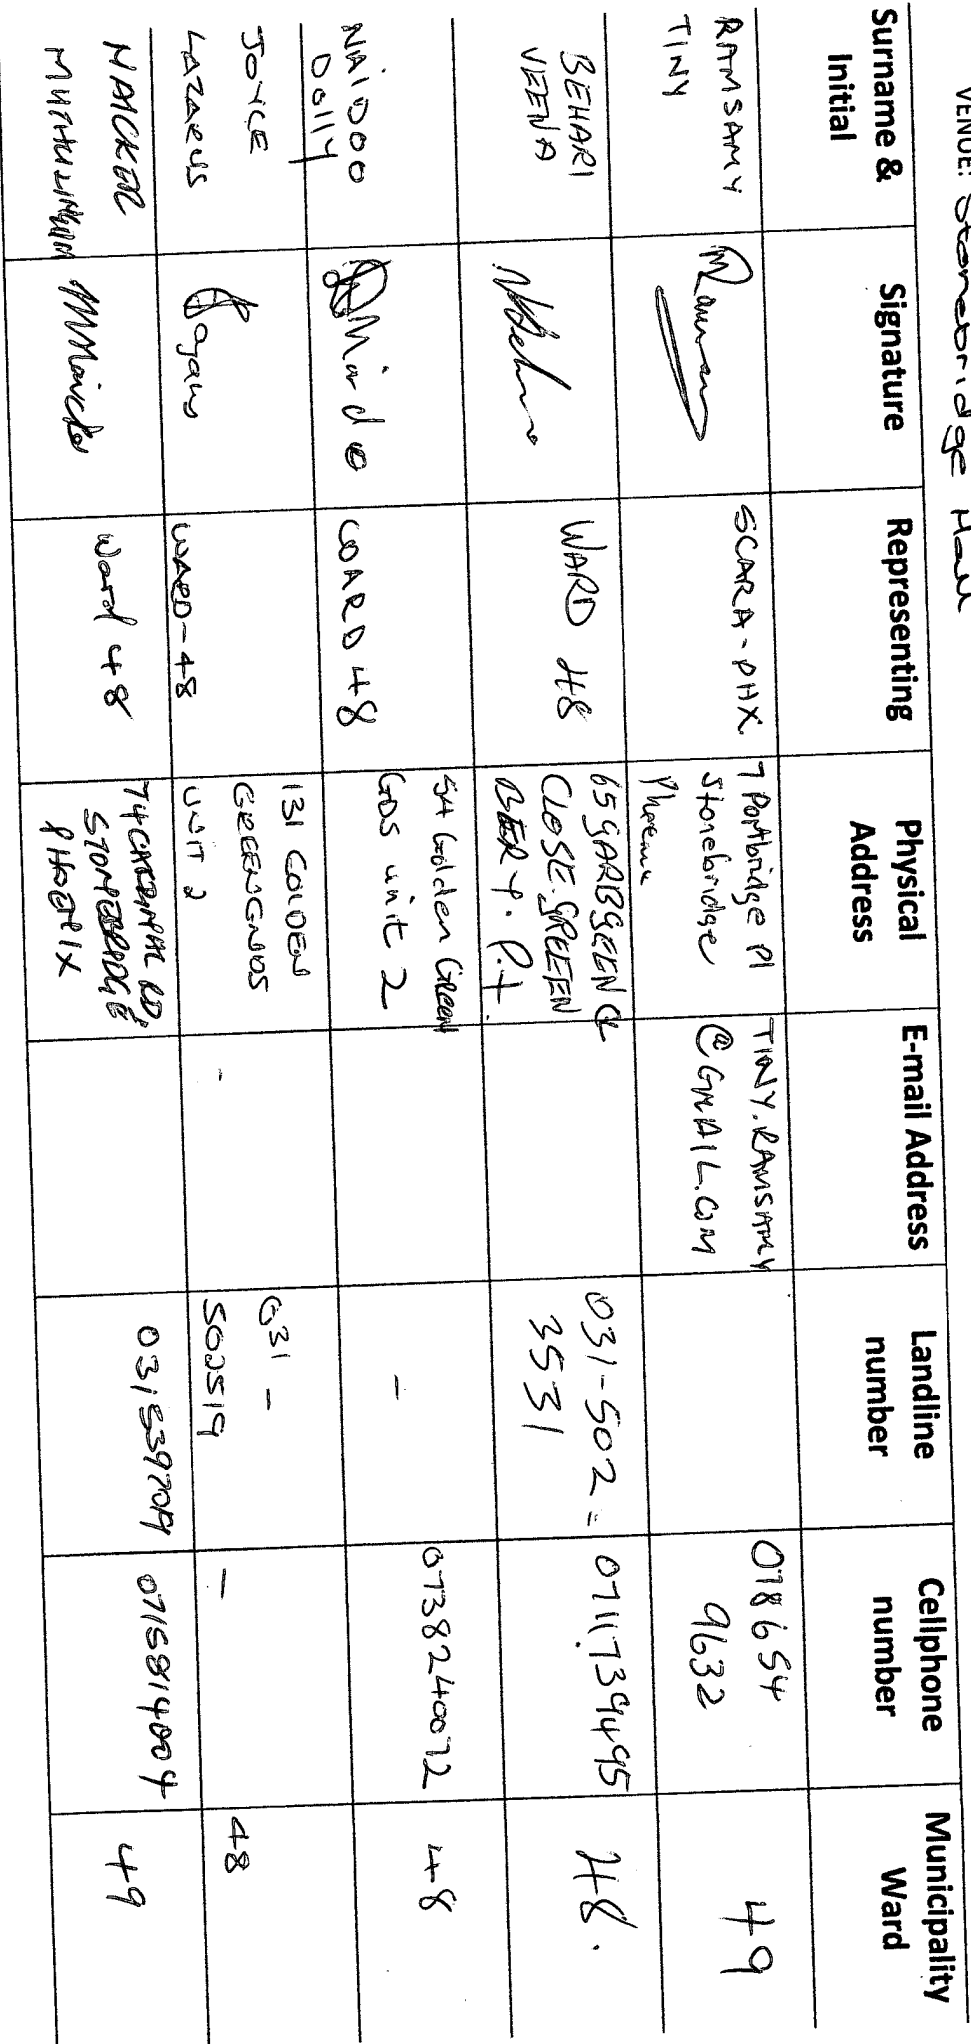 VENUE: Stonebridge Hall
Surname & Initial
Signature
Representing
Physical Address
E-mail Address
Landline number
Cellphone number
Municipality Ward
RAMSAMY
TINY
SCARA - PHX
7 Portbridge Pl
Stonebridge
Phoenix
TINY.RAMSAMY
@GMAIL.COM
078654
9632
49
BEHARI
VEENA
WARD 48
CLOSE. GREEN
BERY. P.X
031-502=
3531
48.
NAIDOO
Dolly
WARD 48
54 Golden Green
GDS unit 2
-
0738240072
48
JOYCE
LAZARUS
WARD-48
131 GOLDEN
UNIT 2
-
031 -
502519
-
48
NAICKER
Ward 48
STONEBRIDGE
PHOENIX
0715814004
49